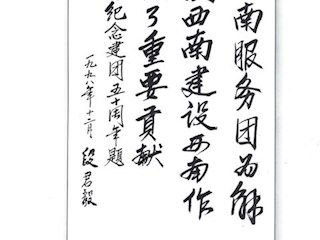 南服务团为解
西南建设西南作
了重要貢献
纪念建团五十周年题
一九九八年十二月 段君毅